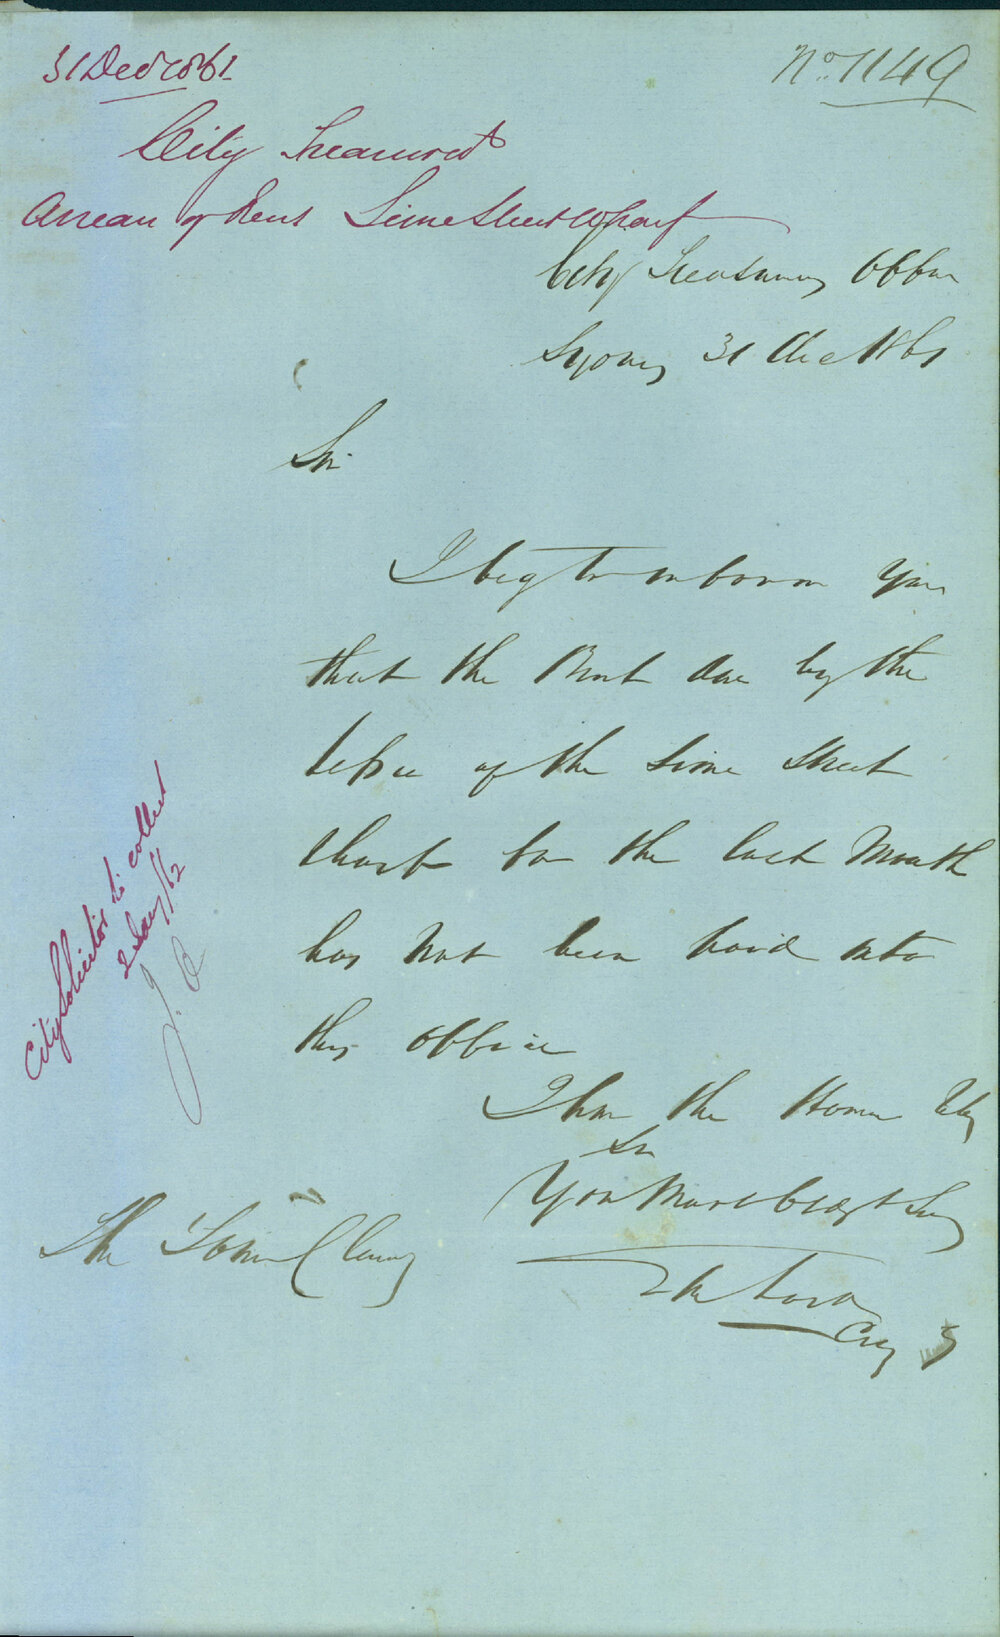 31 Decr 1861
No. 1149
City Treasurer
Arrears of Rent Lime Street Wharf
City Treasurers Office
Sydney 31 Dec 1861
Sir
I beg to inform you
that the Rent due by the
lessee of the Lime Street
Wharf for the last Month
has not been paid into
this office
I have the Honor to be
Sir
Your Most Obdt Serv
City
The Town Clerk
City Solicitor to collect
2 Jany /62
J. O